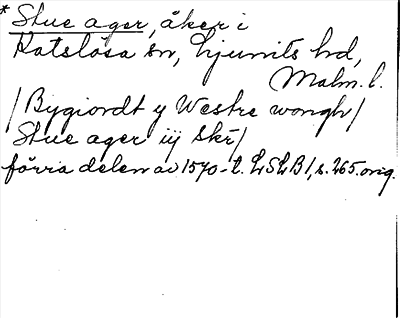 * Stue ager, åker i
Katslösa sn, Ljunits hd,
Malm. l.
/ Bygiordt y Westre wongh /
Stue ager iij skr /
förra delen av 1570-t. LSLB 1, s. 265. orig.